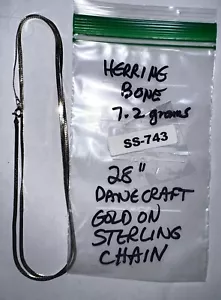 HERRING
BONE
7.2 grams
SS-743
28"
DANECRAFT
GOLD ON
STERLING
CHAIN